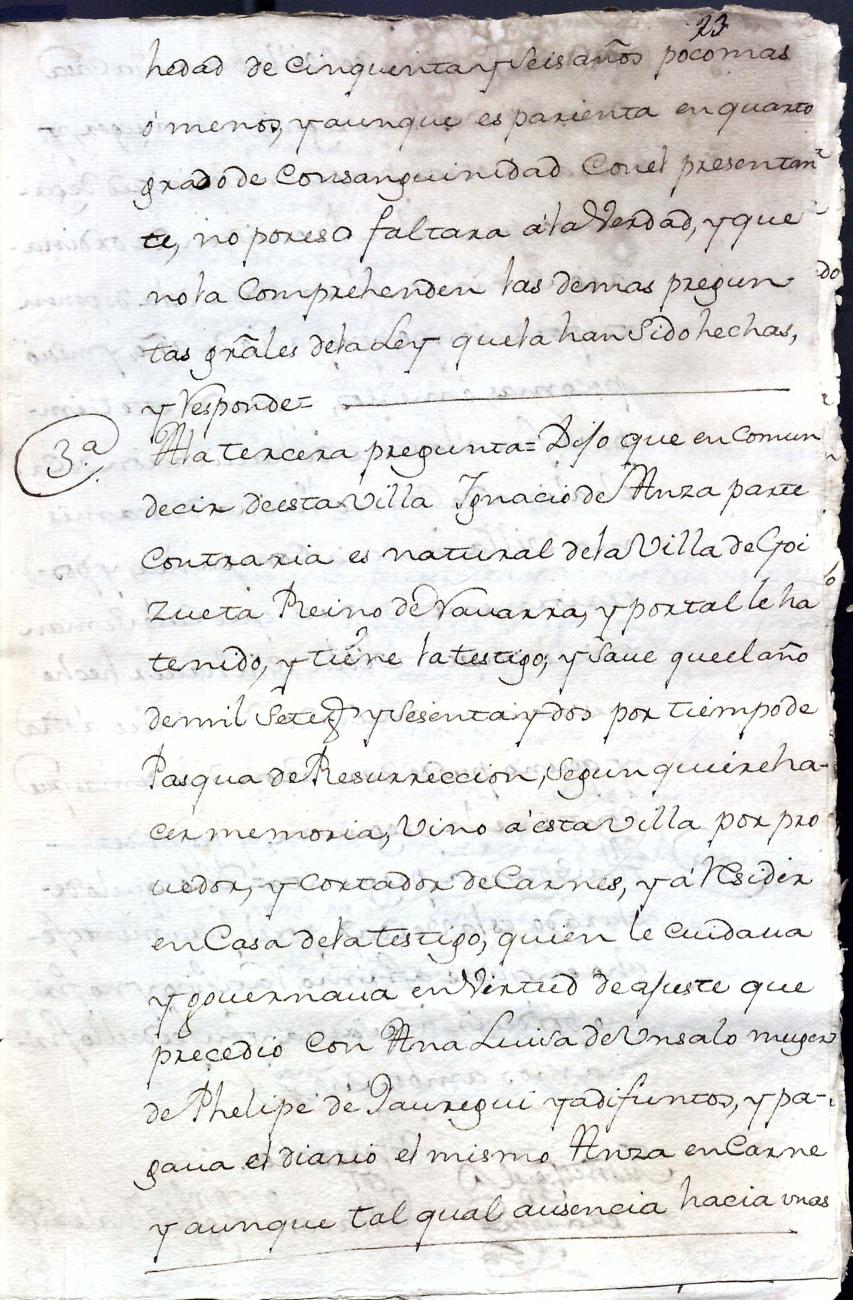 23
hedad de cinquenta y seis años poco mas
ó menos, y aunque es parienta en quarto
grado de Consanguinidad Con el presentan
te, no por eso faltara a la Verdad, y que
no la Comprehenden las demas pregun
tas grãles de la Ley que la han Sido hechas,
y Responde=
3.ª
A la tercera pregunta= Dijo que en comun
decir de esta Villa Ignacio de Anza parte
Contraria es natural de la Villa de Goi
zueta Reino de Navarra, y por tal le ha
tenido, y tiene la testigo, y Save que el año
de mil Setez y Sesenta y dos por tiempo de
Pasqua de Resurreccion, segun quiere ha-
cer memoria, Vino a esta Villa por pro
uedor, y Cortador de Carnes, y a Residir
en Casa de la testigo, quien le cuidaua
y gouernaua en Virtud de ajuste que
precedio Con Ana Luisa de Unsalo muger
de Phelipe de Jauregui ya difuntos, y pa-
gaua el diario el mismo Anza en Carne
y aunque tal qual ausencia hacia unas